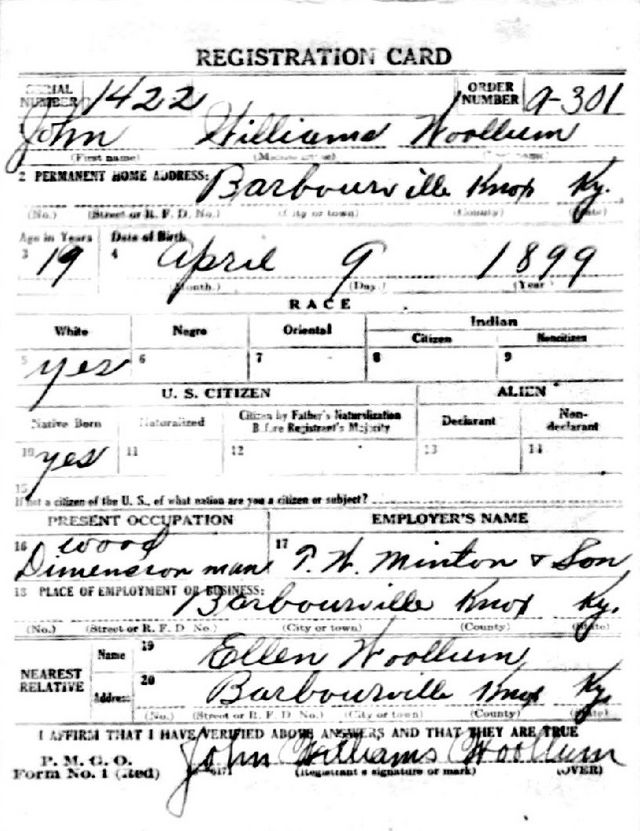 REGISTRATION CARD
SERIAL NUMBER 1422 ORDER NUMBER A-301
John Williams Woollum
(First name) (Middle name)
2 PERMANENT HOME ADDRESS: Barbourville Knox Ky.
(No.) (Street or R. F. D. No.) (City or town) (County) (State)
Age in Years Date of Birth
3 19 4 April 9 1899
(Month.) (Day.) (Year)
RACE
White Negro Oriental Indian
Citizen Noncitizen
5 yes 6 7 8 9
U. S. CITIZEN ALIEN
Native Born Naturalized Citizen by Father's Naturalization Before Registrant's Majority Declarant Non-declarant
10 yes 11 12 13 14
15
If not a citizen of the U. S., of what nation are you a citizen or subject?
PRESENT OCCUPATION EMPLOYER'S NAME
16 wood Dimension man 17 T. W. Minton & Son
18 PLACE OF EMPLOYMENT OR BUSINESS: Barbourville Knox Ky.
(No.) (Street or R. F. D. No.) (City or town) (County) (State)
NEAREST RELATIVE Name 19 Ellen Woollum
Address 20 Barbourville Knox Ky.
(No.) (Street or R. F. D. No.) (City or town) (County) (State)
I AFFIRM THAT I HAVE VERIFIED ABOVE ANSWERS AND THAT THEY ARE TRUE
P. M. G. O.
Form No. 1 (Red) John Williams Woollum
(Registrant's signature or mark) (OVER)